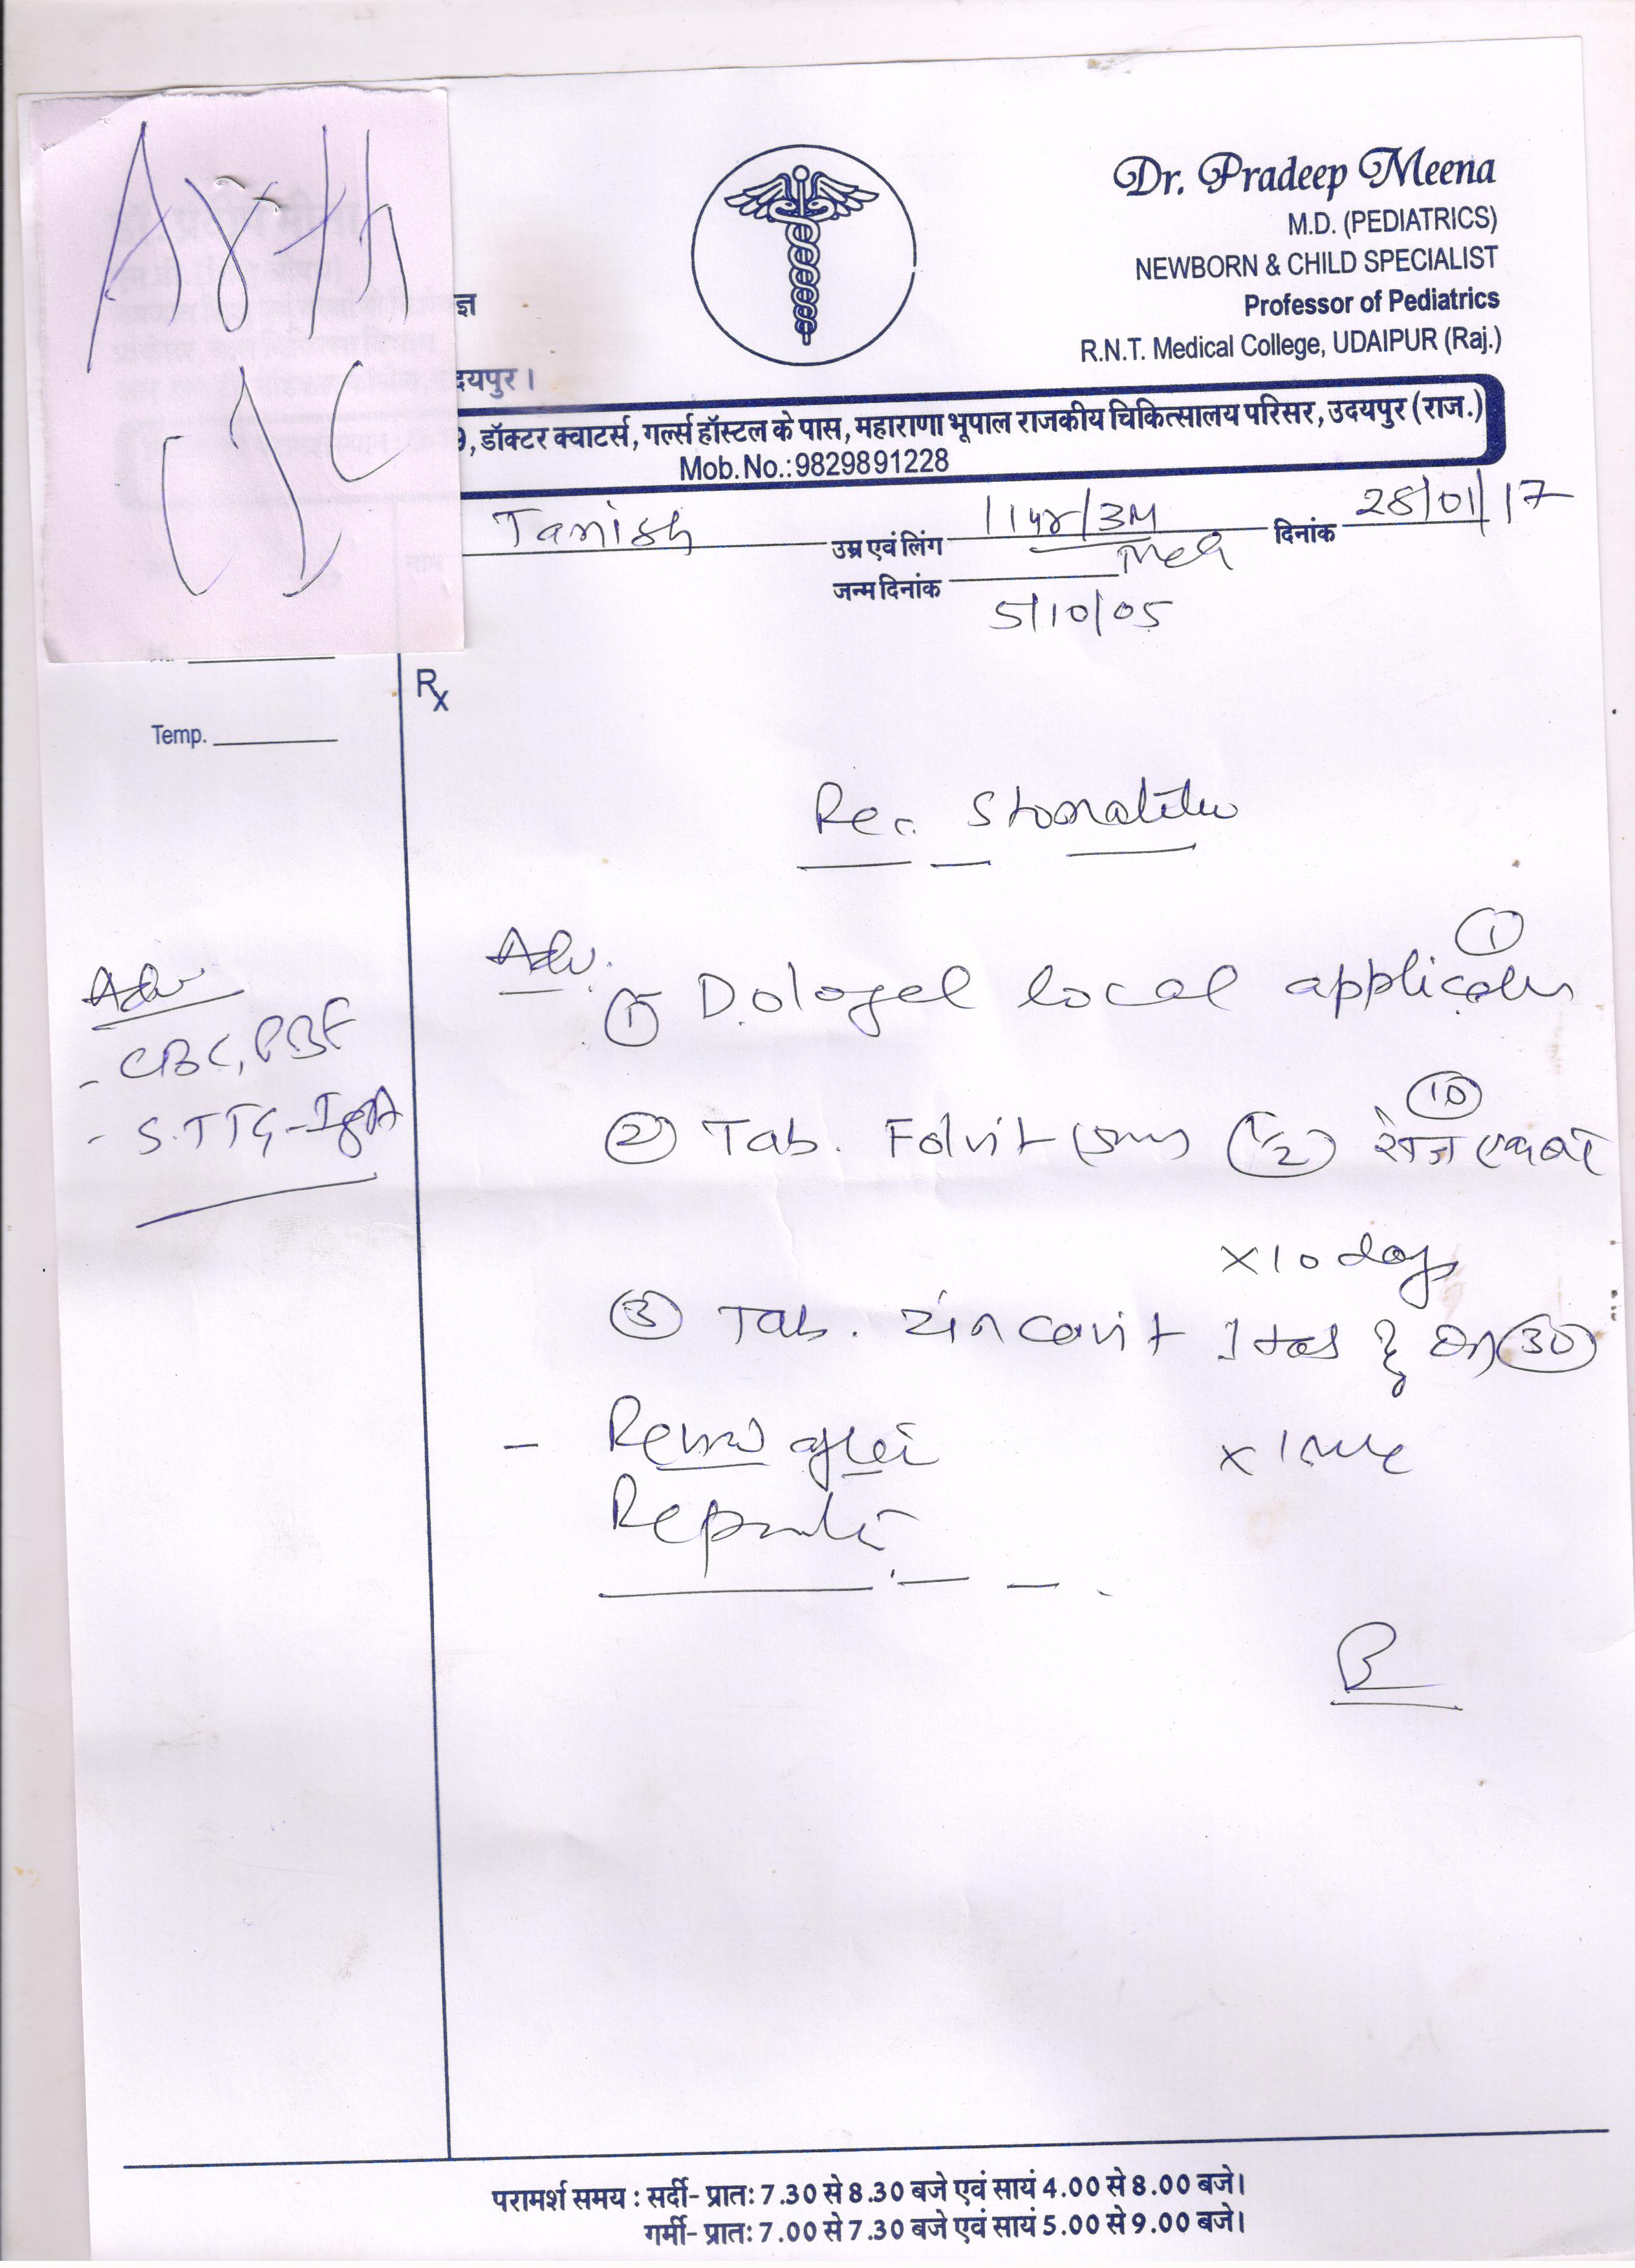 Arth
Dr. Pradeep Meena
M.D. (PEDIATRICS)
NEWBORN & CHILD SPECIALIST
Professor of Pediatrics
R.N.T. Medical College, UDAIPUR (Raj.)
ज्ञ
दयपुर।
9, डॉक्टर क्वाटर्स, गर्ल्स हॉस्टल के पास, महाराणा भूपाल राजकीय चिकित्सालय परिसर, उदयपुर (राज.)
Mob. No.:9829891228
Tanish उम्र एवं लिंग 11yr/3M दिनांक 28/01/17
जन्म दिनांक 5/10/05
Rx
Temp.
Rec. Stomatitis
Adv
- CBC, PBF
- S.TTG-IgA
Adv.
① Dologel local application ①
② Tab. Folvit (5mg) (1/2) रोज एक बार ⑩
x 10 days
③ Tab. Zincovit 1 tab ㉚
x 1
- Review after
Reports
परामर्श समय : सर्दी- प्रातः 7.30 से 8.30 बजे एवं सायं 4.00 से 8.00 बजे।
गर्मी- प्रातः 7.00 से 7.30 बजे एवं सायं 5.00 से 9.00 बजे।